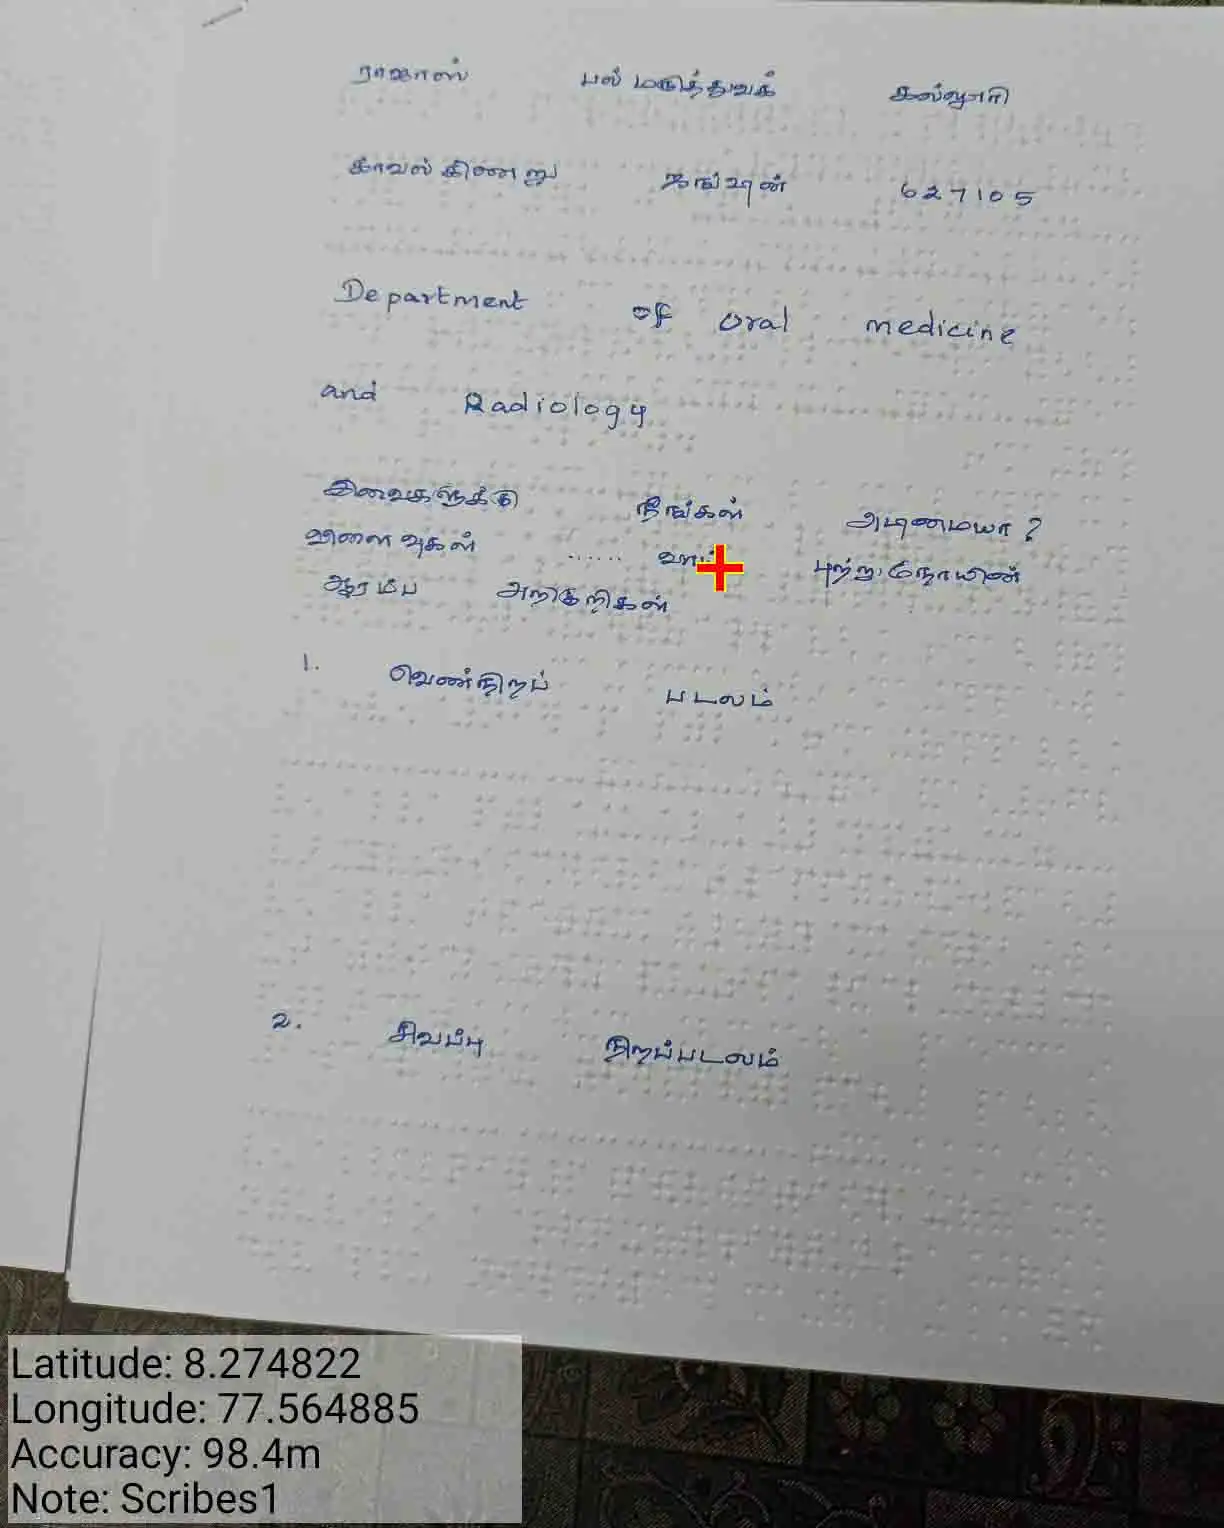 ராஜாஸ் பல் மருத்துவக் கல்லூரி
காவல் கிணறு ஜங்ஷன் 627105
Department of oral medicine
and Radiology
இவைகளுக்கு நீங்கள் அடிமையா?
விளைவுகள் ...... புற்று நோயின்
ஆரம்ப அறிகுறிகள்
1. வெண்நிறப் படலம்
2. சிவப்பு நிறப்படலம்
Latitude: 8.274822
Longitude: 77.564885
Accuracy: 98.4m
Note: Scribes1